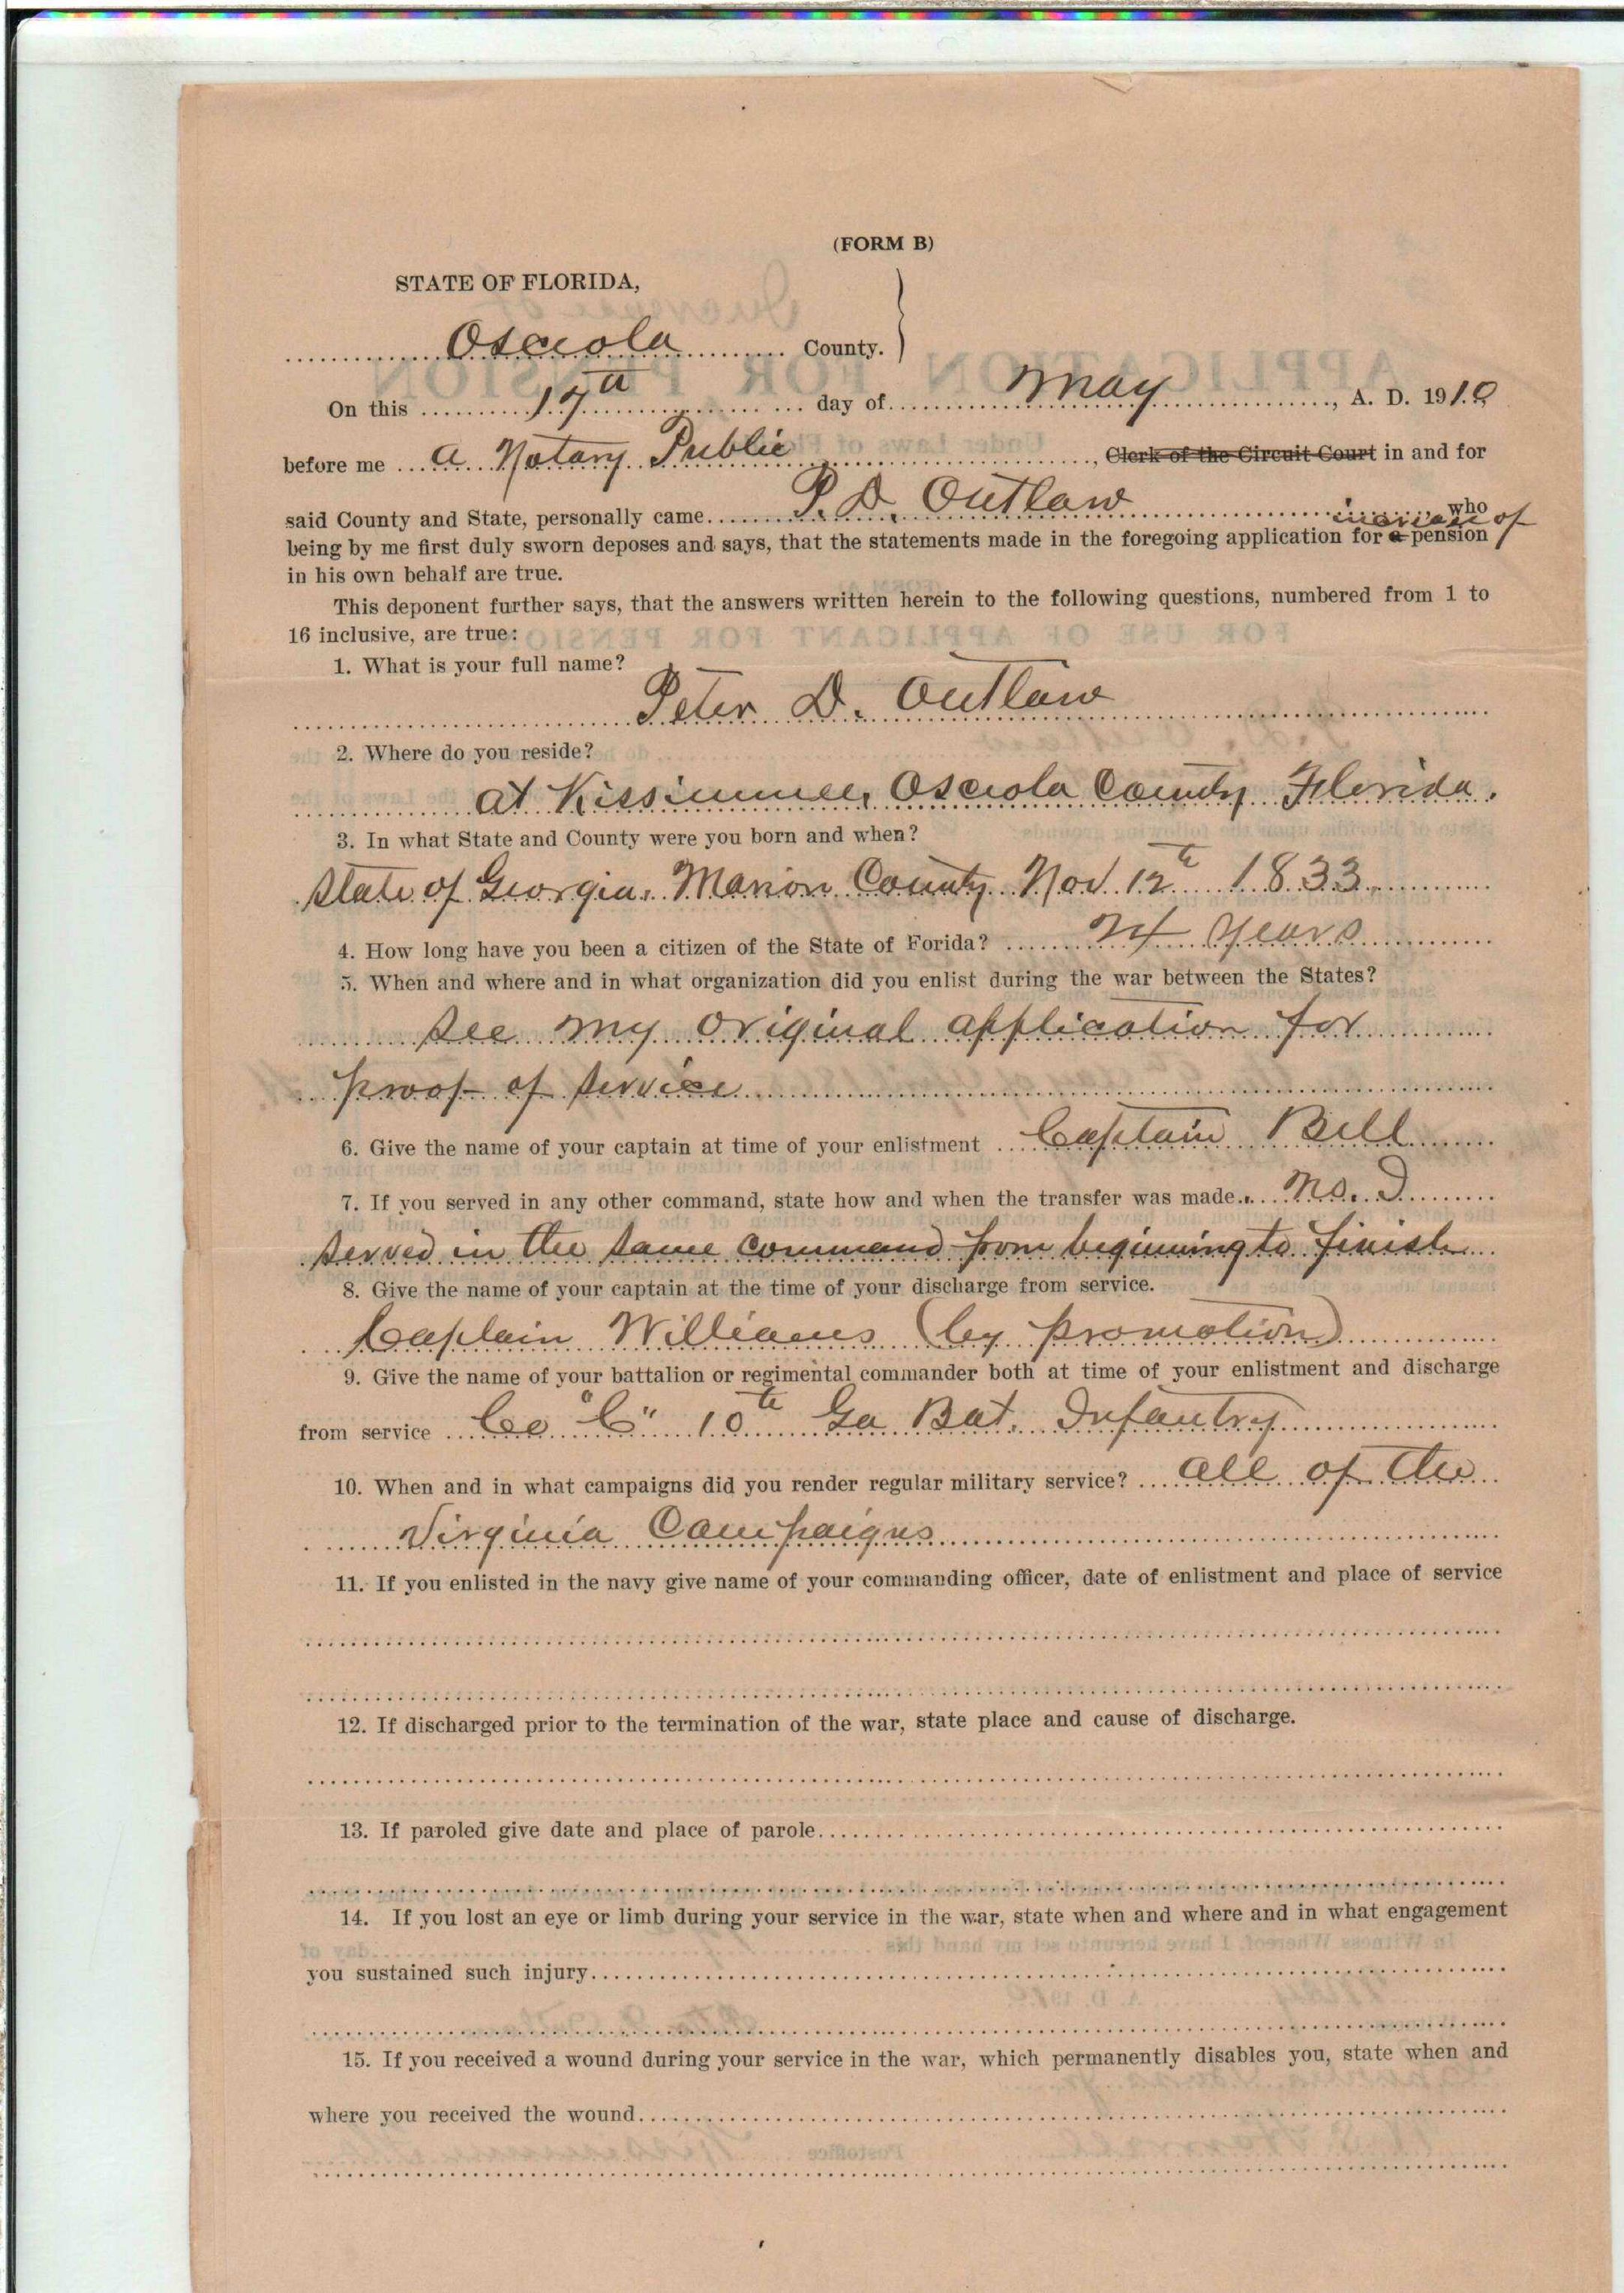 (FORM B)
STATE OF FLORIDA,
Osceola County.
On this 17th day of May, A. D. 1910
before me a Notary Public, Clerk of the Circuit Court in and for
said County and State, personally came P. D. Outlaw who
increase of
being by me first duly sworn deposes and says, that the statements made in the foregoing application for a pension
in his own behalf are true.
This deponent further says, that the answers written herein to the following questions, numbered from 1 to
16 inclusive, are true:
1. What is your full name?
Peter D. Outlaw
2. Where do you reside?
at Kissimmee, Osceola County Florida.
3. In what State and County were you born and when?
State of Georgia, Marion County Nov 12th 1833
4. How long have you been a citizen of the State of Forida? 24 years
5. When and where and in what organization did you enlist during the war between the States?
See my original application for
proof of service
6. Give the name of your captain at time of your enlistment Captain Bell
7. If you served in any other command, state how and when the transfer was made. No. I
served in the same command from beginning to finish
8. Give the name of your captain at the time of your discharge from service.
Captain Williams (by promotion)
9. Give the name of your battalion or regimental commander both at time of your enlistment and discharge
from service Co "C" 10th Ga Bat. Infantry
10. When and in what campaigns did you render regular military service? All of the
Virginia Campaigns
11. If you enlisted in the navy give name of your commanding officer, date of enlistment and place of service
12. If discharged prior to the termination of the war, state place and cause of discharge.
13. If paroled give date and place of parole
14. If you lost an eye or limb during your service in the war, state when and where and in what engagement
you sustained such injury
15. If you received a wound during your service in the war, which permanently disables you, state when and
where you received the wound